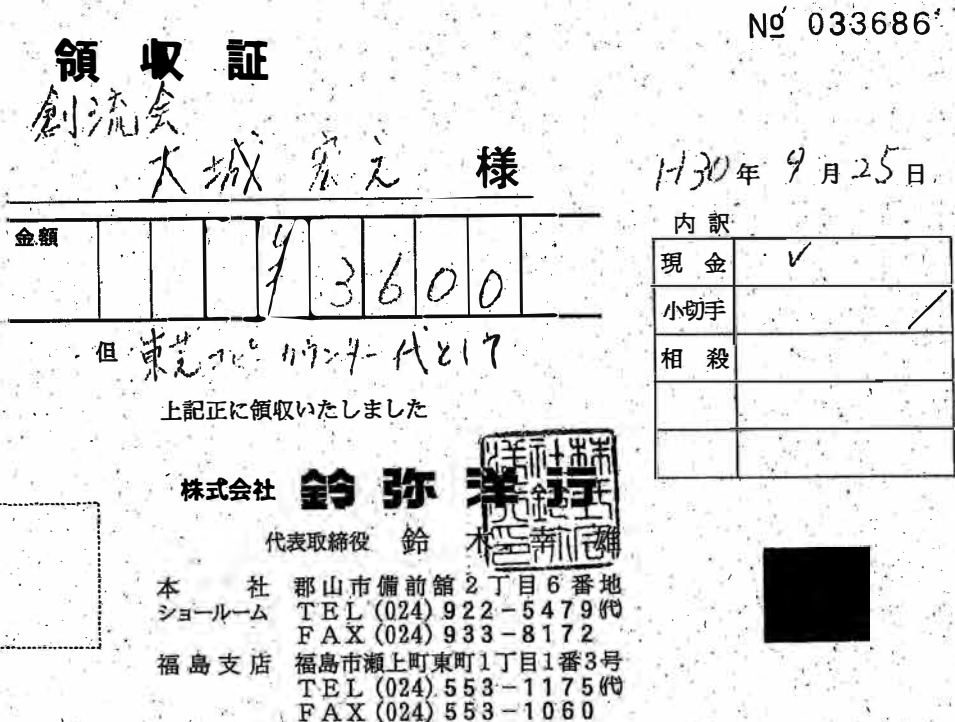 No 033686
領収証
創流会
大城宏之 様
H30年9月25日
金額 ¥3600
内訳
現金 ✓
小切手
相殺
但 東芝コピーカウンター代として
上記正に領収いたしました
株式会社 鈴弥洋行
代表取締役 鈴木
本社 郡山市備前舘2丁目6番地
ショールーム TEL(024)922-5479㈹
FAX(024)933-8172
福島支店 福島市瀬上町東町1丁目1番3号
TEL(024)553-1175㈹
FAX(024)553-1060